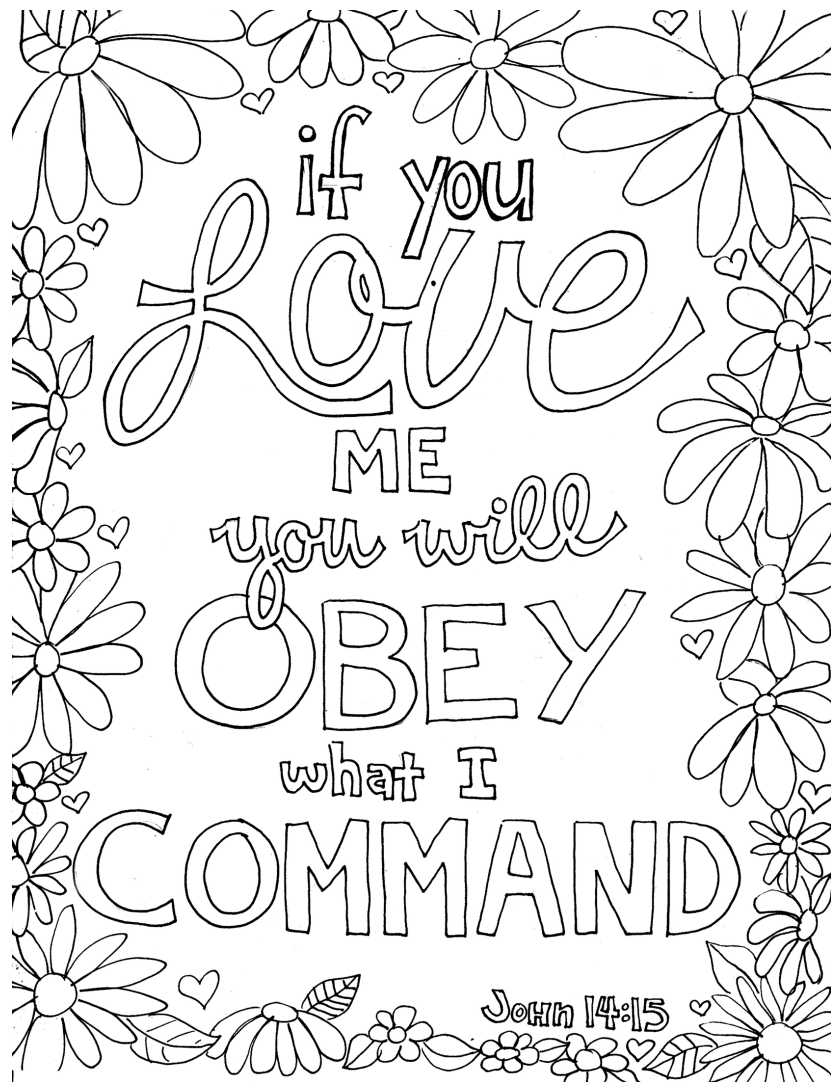 if you
Love
ME
you will
OBEY
what I
COMMAND
JOHN 14:15